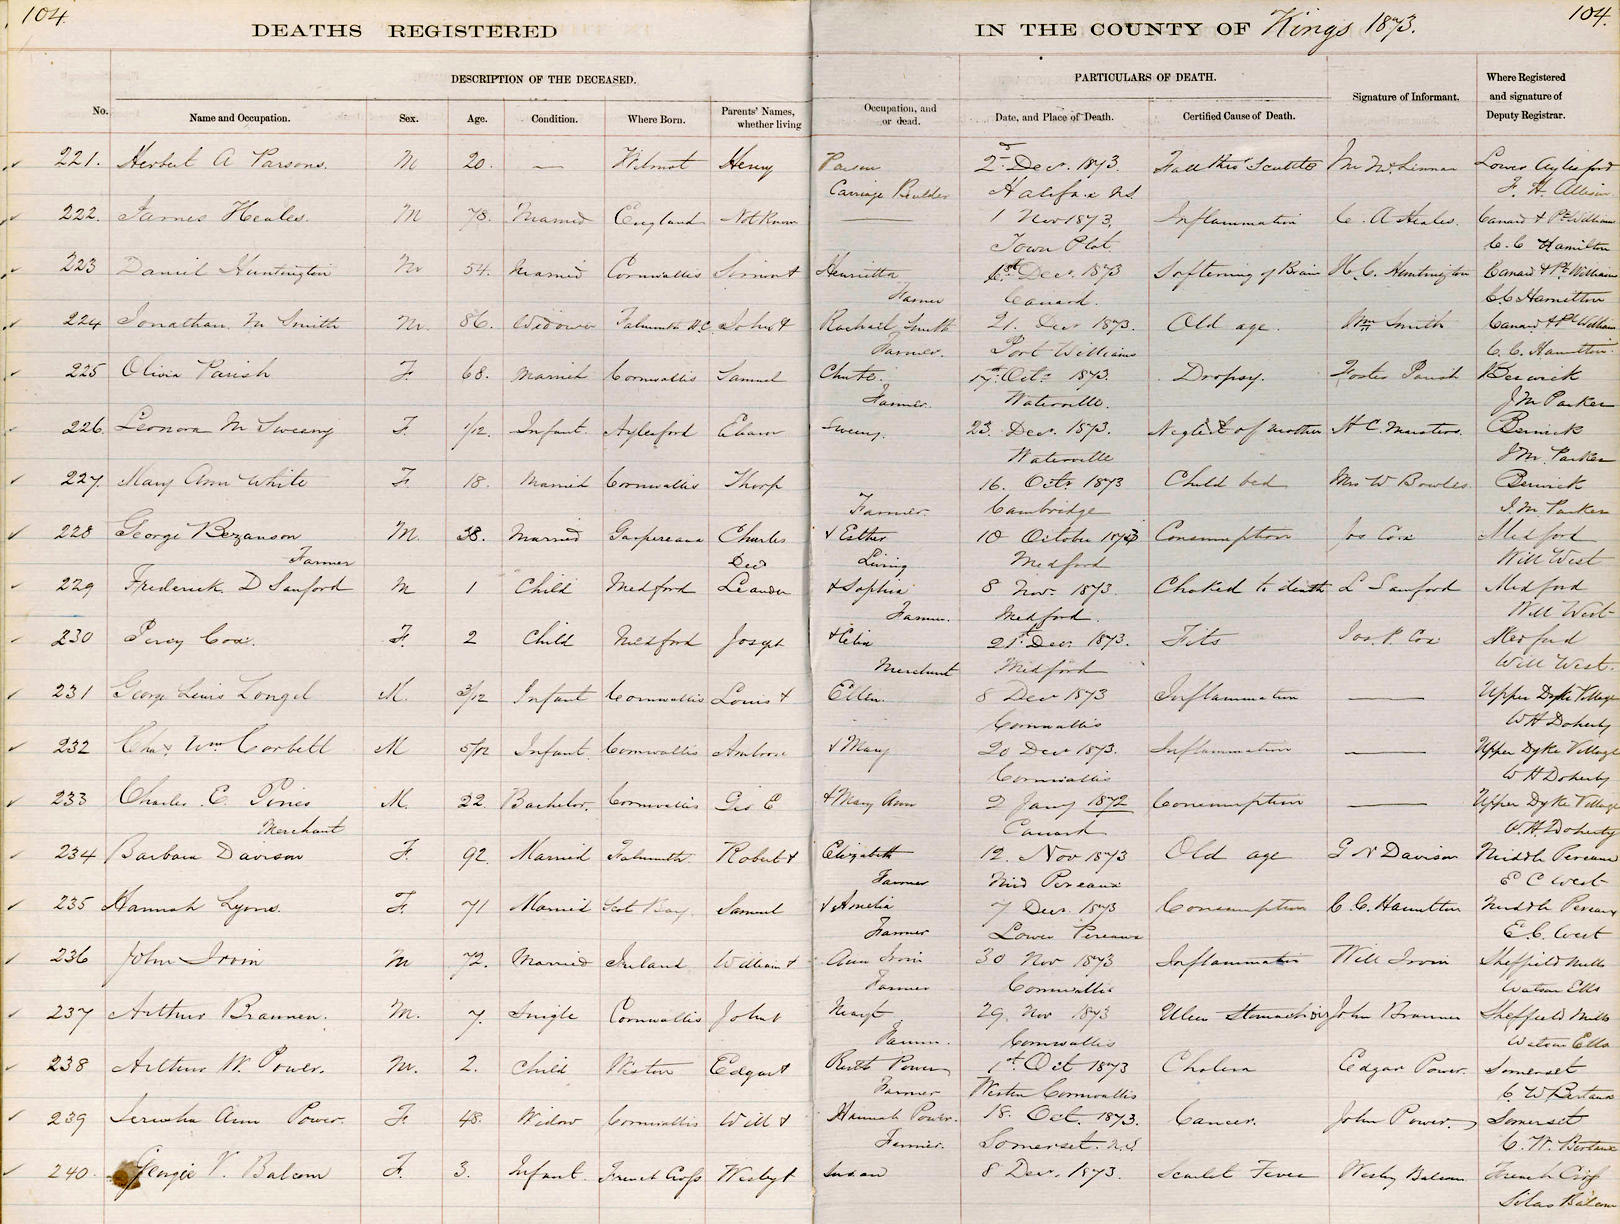 104.
104.
DEATHS REGISTERED
IN THE COUNTY OF Kings 1873.
DESCRIPTION OF THE DECEASED.
PARTICULARS OF DEATH.
No.
Name and Occupation.
Sex.
Age.
Condition.
Where Born.
Parents' Names, whether living
Occupation, and or dead.
Date, and Place of Death.
Certified Cause of Death.
Signature of Informant.
Where Registered and signature of Deputy Registrar.
221. Herbert A Parsons. M 20. — Wilmot Henry Parson 2nd Dec. 1873. Fall thro' Scuttle Lower Aylesford
Carriage Builder Halifax N.S. F. H. Allison
222. James Heales. M 78. Married England Not Known — 1 Nov 1873, Inflammation C. A Heales. Canard & Pt William
Town Plot C. C Hamilton
223 Daniel Huntington M 54. Married Cornwallis Simon & Henrietta 1st Dec. 1873 Softening of Brain H. C. Huntington Canard & Pt William
Farmer Canard. C.C Hamilton
224 Jonathan M Smith M. 86. Widower Falmouth H.C. John & Rachail Smith 21. Dec 1873. Old age. Wm Smith Canard & Pt William
Farmer. Port Williams C. C. Hamilton
225 Olivia Parish F. 68. Married Cornwallis Samuel Chute. 17. Oct. 1873. Dropsy. Foster Parish Berwick
Farmer. Waterville. J M Parker
226. Leonora M Sweeny F. 1/12. Infant. Aylesford Eban Sweeny. 23. Dec. 1873. Neglect of mother H C. Masters. Berwick
Waterville J M. Parker
227. Mary Ann White F. 18. Married Cornwallis Thorp 16. Oct. 1873 Child bed Mrs W Bowles. Berwick
Farmer. Cambridge J. M. Parker
228 George Bezanson M. 38. Married Gaspereaux Charles & Esther 10 October 1873 Consumption Jos Cox Medford
Farmer Decd Living Medford Will West
229 Frederick D Sanford M 1 Child Medford Leander & Sophia 8 Nov. 1873. Choked to death L Sanford Medford
Farmer. Medford. Will West
230 Percy Cox. F. 2 Child Medford Joseph & Celia 21st Dec. 1873. Fits Jos P. Cox Medford
Merchant Medford Will West.
231 George Lewis Longel M. 3/12 Infant Cornwallis Louis & Ellen. 8 Dec 1873 Inflammation — Upper Dyke Village
Cornwallis W H Doherty
232 Chas Wm Corbett M 5/12 Infant. Cornwallis Ambrose & Mary 20 Dec 1873. Inflammation — Upper Dyke Village
Cornwallis W H Doherty
233 Charles E. Pines M. 22. Bachelor. Cornwallis Geo E & Mary Ann 2 Jany 1872 Consumption — Upper Dyke Village
Merchant Canard W. H. Doherty
234 Barbara Davison F. 92. Married Falmouth. Robert & Elizabeth 12. Nov 1873 Old age G N Davison Middle Pereaux
Farmer Mid Pereaux E C West
235 Hannah Lyons. F. 71 Married Scot Bay. Samuel & Amelia 7 Dec. 1873 Consumption C. C. Hamilton Middle Pereaux
Farmer Lower Pereaux E. C. West
236 John Irvin M 72. Married Ireland William & Ann Irvin 30 Nov 1873 Inflammation Will Irvin Sheffield Mills
Farmer Cornwallis Watson Ells
237 Arthur Brannen. M. 7. Single Cornwallis John & 29. Nov 1873 Ulcer Stomach John Brannen Sheffield Mills
Farmer. Cornwallis Watson Ells
238 Arthur W. Power. M. 2. Child Weston Edgar & Ruth Power 1st Oct 1873 Cholera Edgar Power. Somerset
Farmer Weston Cornwallis C. W Bertaux
239 Jerusha Ann Power. F. 48. Widow Cornwallis Will & Hannah Power. 18. Oct. 1873. Cancer. John Power. Somerset
Farmer. Somerset. N.S C. W. Bertaux
240. Georgie V. Balcom F. 3. Infant. French Cross Wesley & Susan 8 Dec. 1873. Scarlet Fever Wesley Balcom French Cross
Silas Balcom